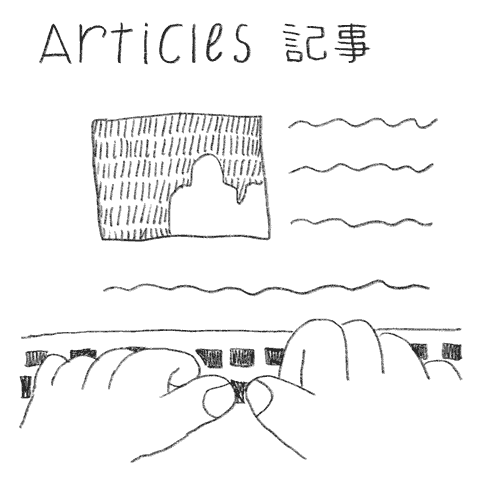 Articles 記事